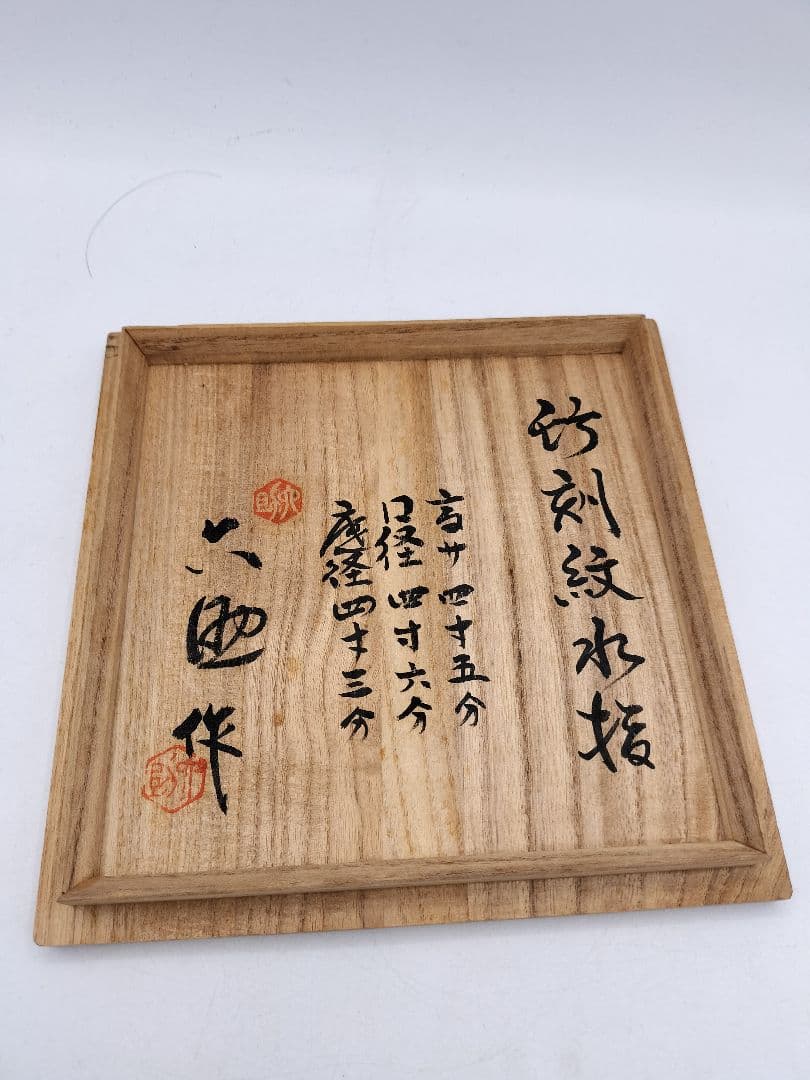 刻紋水指
高サ 四寸五分
口径 四寸六分
底径 四寸三分
六助 作